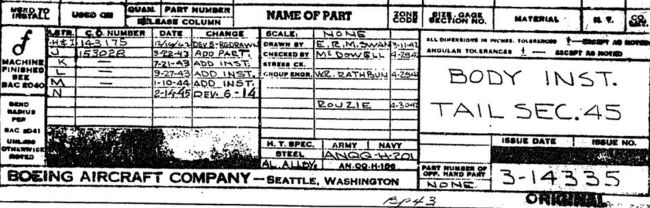 USED TO INSTALL USED ON QUAN. PART NUMBER NAME OF PART ZONE CODE MATERIAL H. T.
RELEASE COLUMN
LETR. C.O. NUMBER DATE CHANGE
H&I 143175 REDRAWN
J 153028 9-22-43 ADD PART.
K — 7-21-43 ADD INST.
L — 9-27-43 ADD INST.
M — 1-10-44 ADD INST.
N 2-14-45 DEV. 6-14
MACHINE FINISHED SEE BAC 2040
BEND RADIUS PER BAC 2041 UNLESS OTHERWISE NOTED
SCALE: NONE
DRAWN BY E.R.M. SWAN 3-11-42
CHECKED BY McDOWELL
STRESS CK.
GROUP ENGR. W.R. RATHBUN
ROUZIE
H. T. SPEC. ARMY NAVY
STEEL ANQQ-H-201
AL. ALLOY. AN-QQ-H-186
ALL DIMENSIONS IN INCHES. TOLERANCES ± EXCEPT AS NOTED
ANGULAR TOLERANCES ± EXCEPT AS NOTED
BODY INST.
TAIL SEC. 45
ISSUE DATE ISSUE NO.
PART NUMBER OF OPP. HAND PART
NONE.
3-14335
BOEING AIRCRAFT COMPANY — SEATTLE, WASHINGTON
ORIGINAL